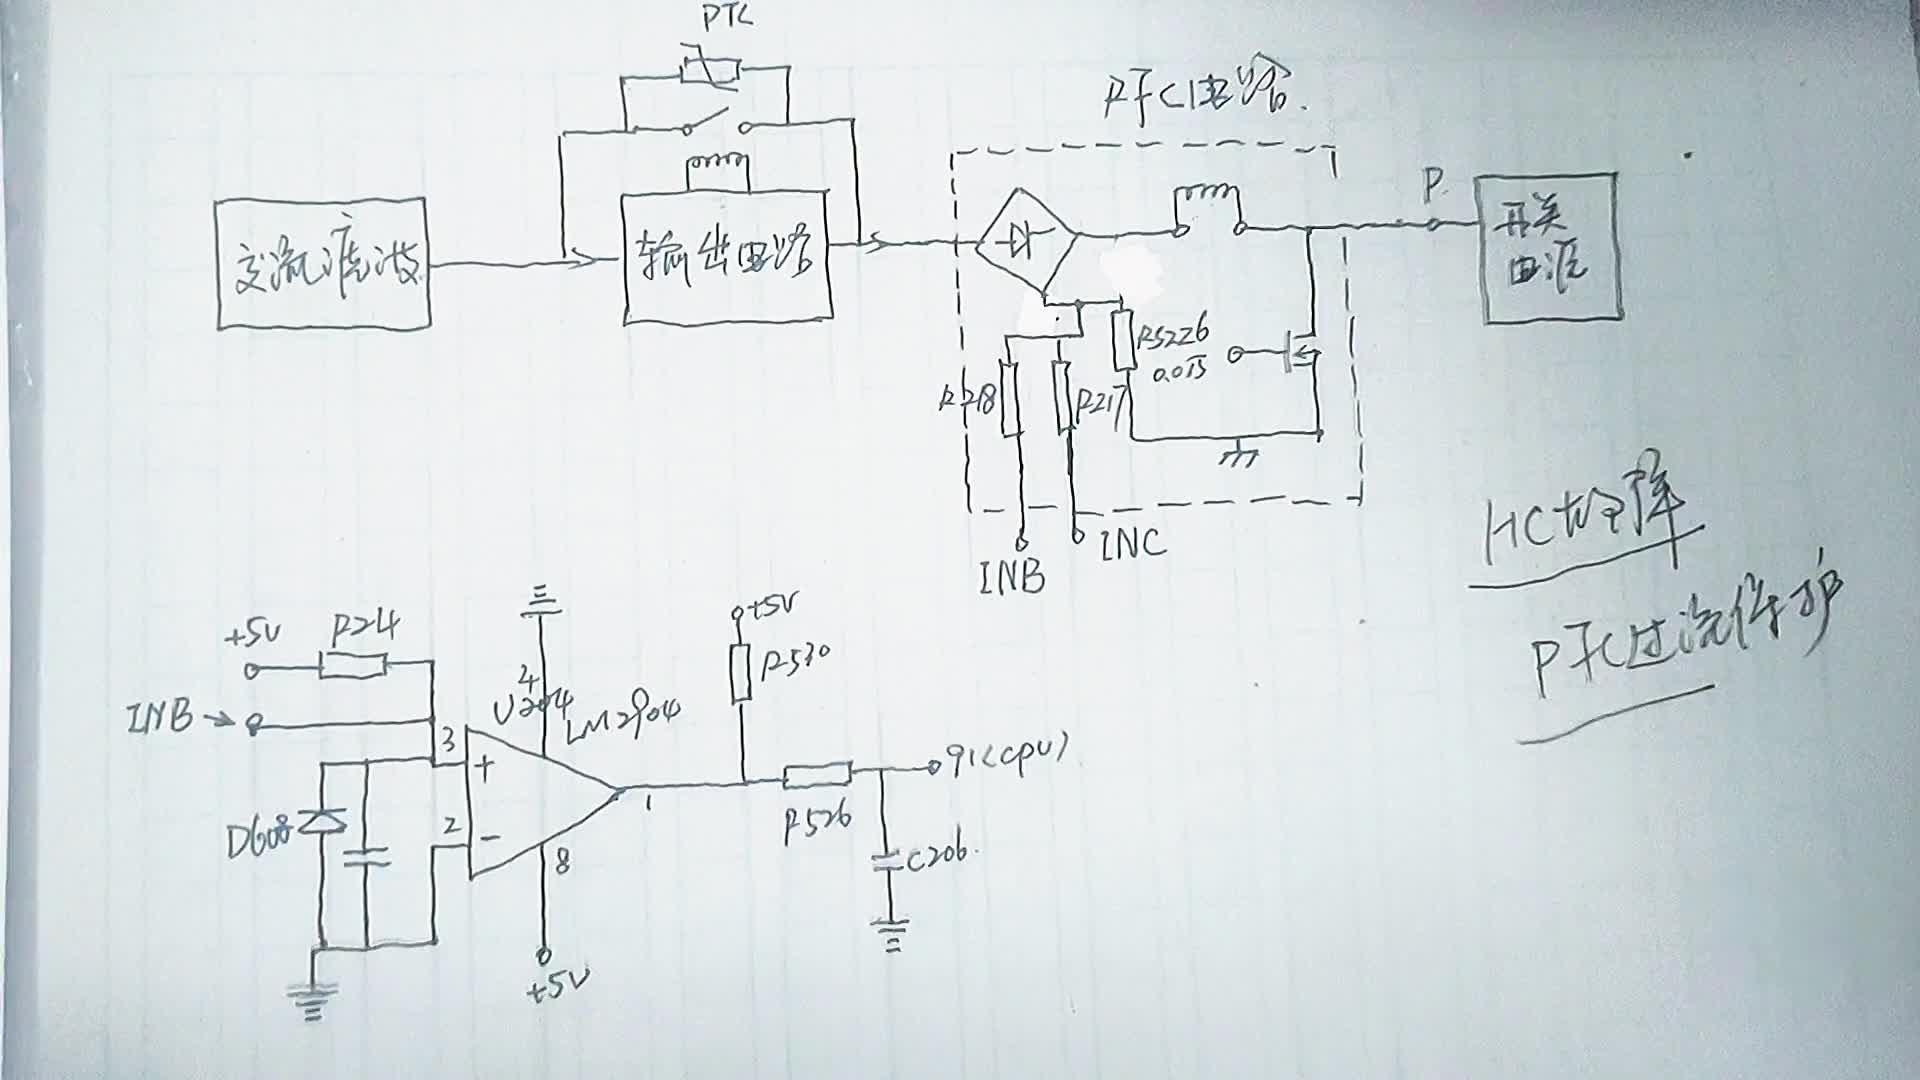 PTC
PFC电路.
P.
交流滤波
输出电路
开关
电源
RS226
0.015
R218
R217
INB
INC
HC冷库
PFC过流保护
+5V
R24
INB
3
2
4
U204
LM2904
+
-
1
8
+5V
D608
+5V
R530
R526
91(CPU)
C206.